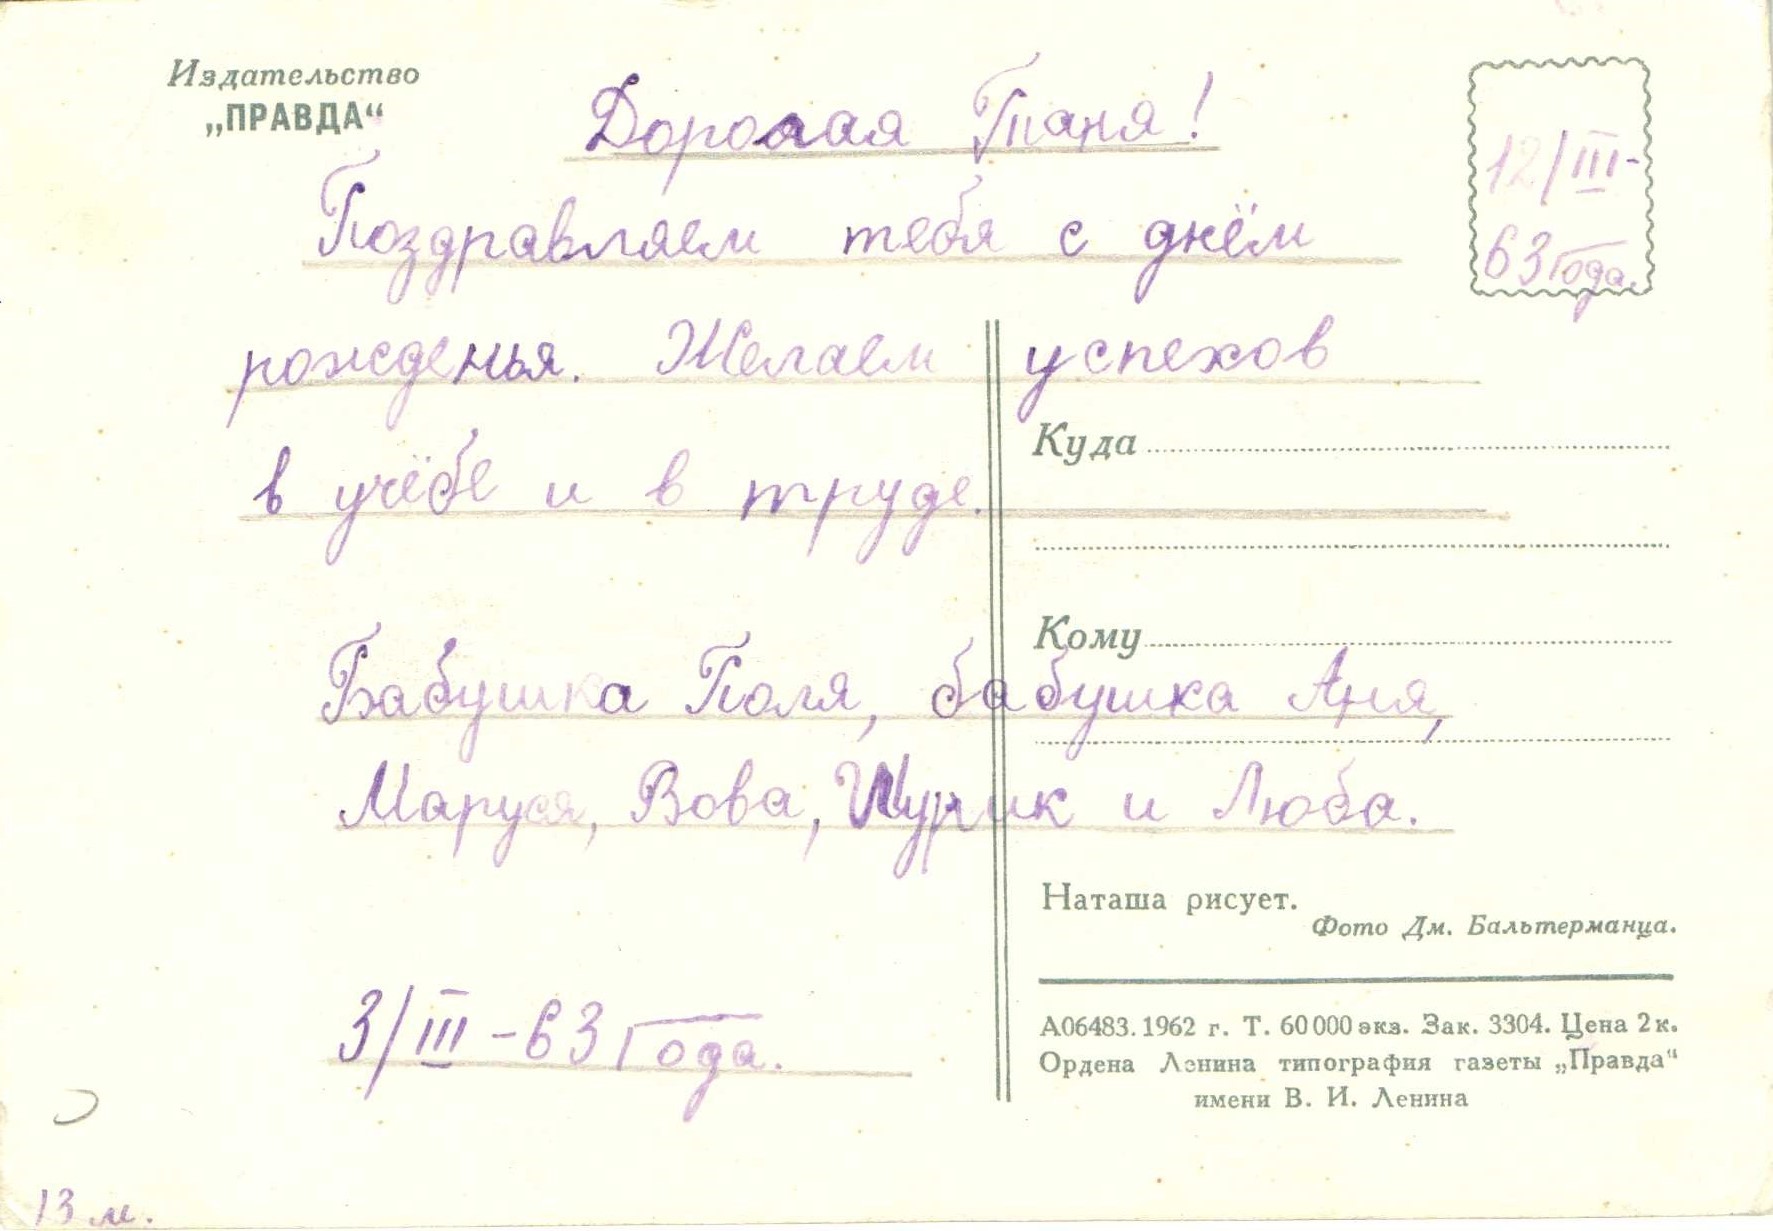 Издательство
„ПРАВДА“
Дорогая Таня!
12/III-
63 года.
Поздравляем тебя с днём
рожденья. Желаем успехов
в учёбе и в труде.
Куда
Кому
Бабушка Поля, бабушка Аня,
Маруся, Вова, Шурик и Люба.
Наташа рисует.
Фото Дм. Бальтерманца.
3/III-63 года.
А06483. 1962 г. Т. 60 000 экз. Зак. 3304. Цена 2 к.
Ордена Ленина типография газеты „Правда“
имени В. И. Ленина
13 м.